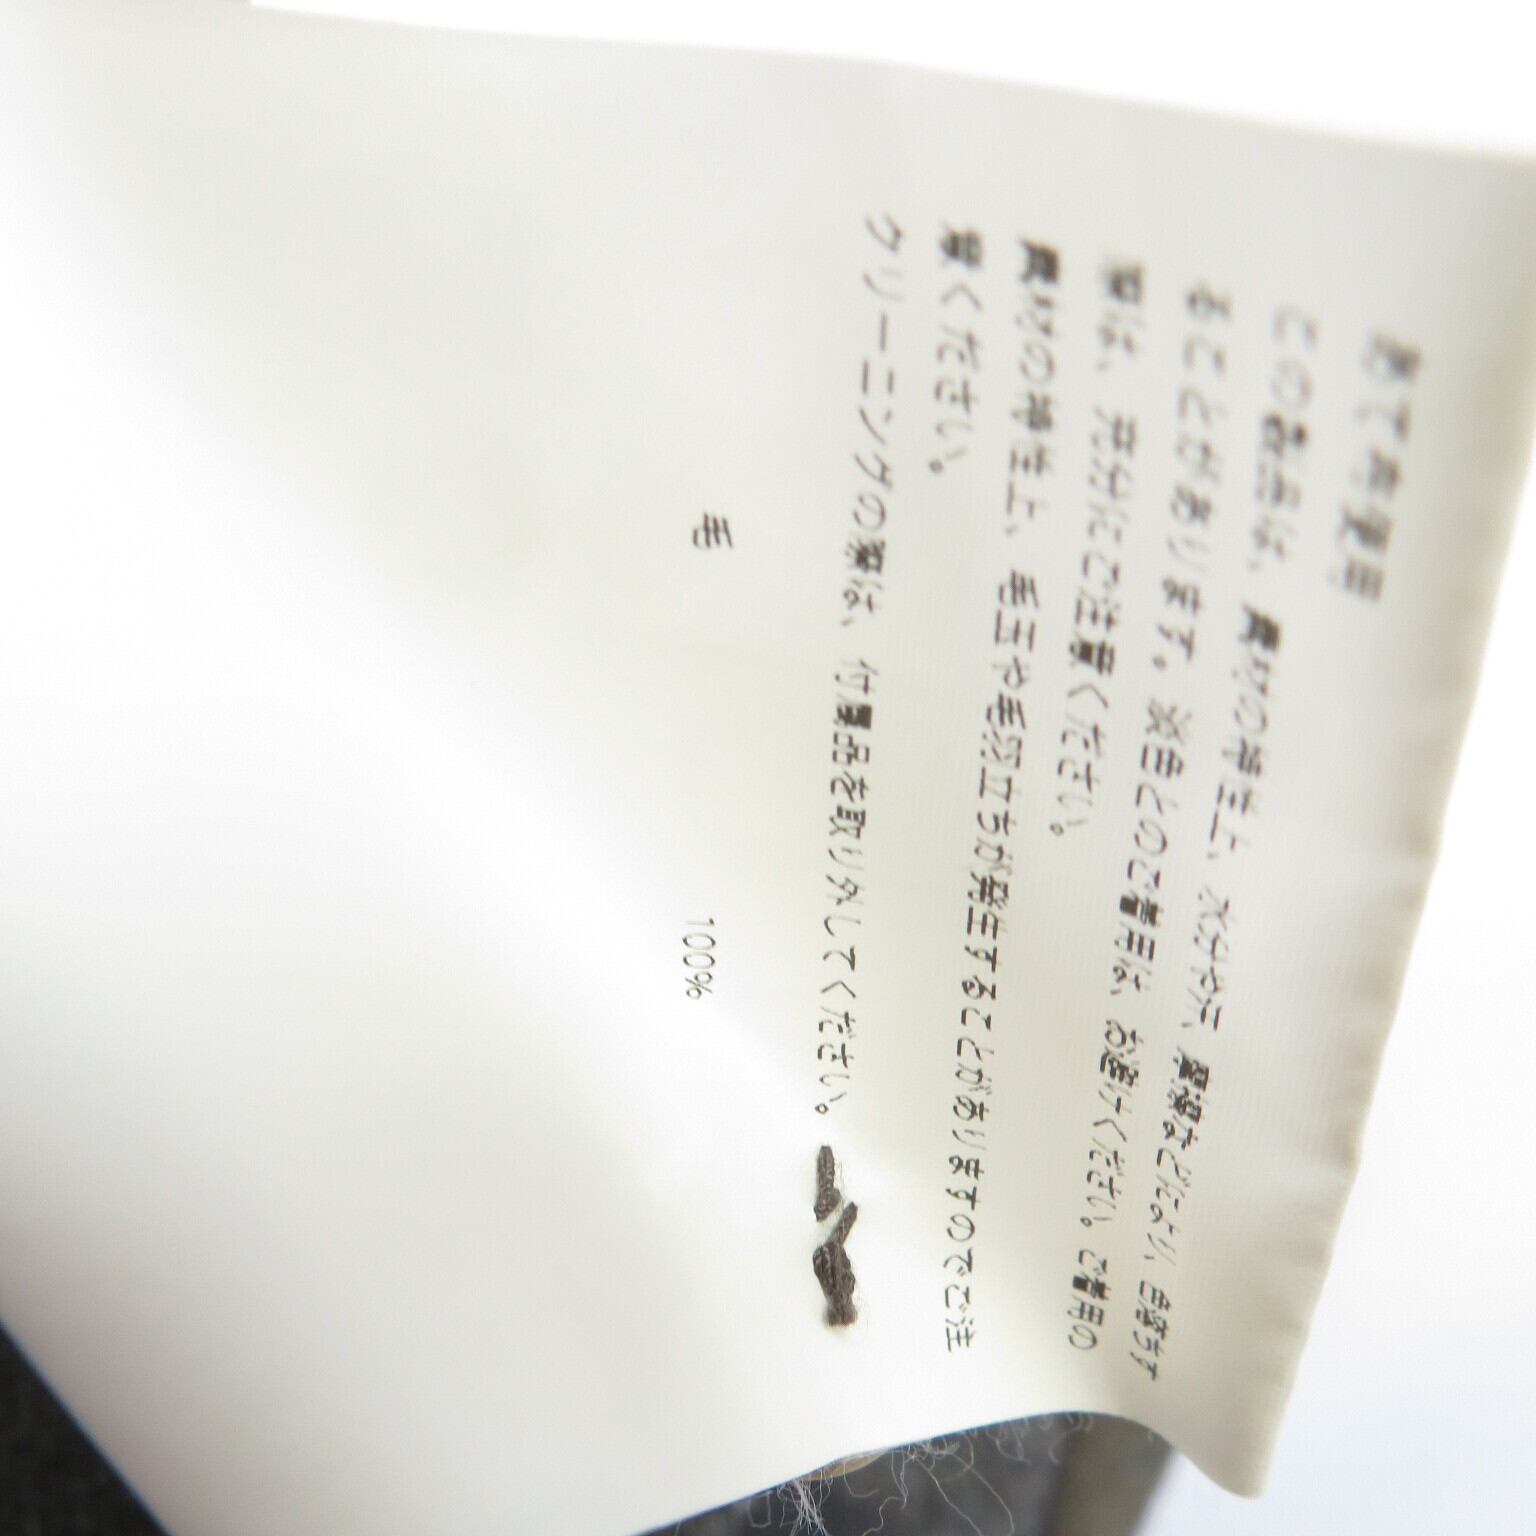 あて布使用
この製品は、素材の特性上、水分や汗、湿湿などにより、色落ちす
ることがあります。淡色とのご着用は、お避けください。ご着用の
際は、充分にご注意ください。
素材の特性上、毛玉や毛羽立ちが発生することがありますのでご注
意ください。
クリーニングの際は、付属品を取り外してください。
毛 100%